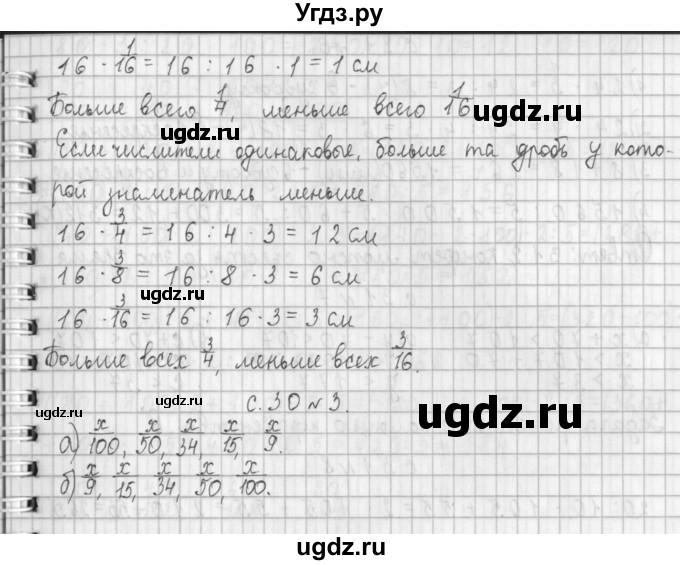 Угдз.ру
16 · 1/16 = 16 : 16 · 1 = 1 см
Больше всего 1/4, меньше всего 1/16
ugdz.ru
ugdz.ru
Если числители одинаковые, больше та дробь у кото-
рой знаменатель меньше.
16 · 3/4 = 16 : 4 · 3 = 12 см
16 · 3/8 = 16 : 8 · 3 = 6 см
ugdz.ru
16 · 3/16 = 16 : 16 · 3 = 3 см
Больше всех 3/4, меньше всех 3/16.
ugdz.ru
с. 30 №3.
ugdz.ru
ugdz.ru
а) x/100, x/50, x/34, x/15, x/9.
б) x/9, x/15, x/34, x/50, x/100.
ugdz.ru
ugdz.ru